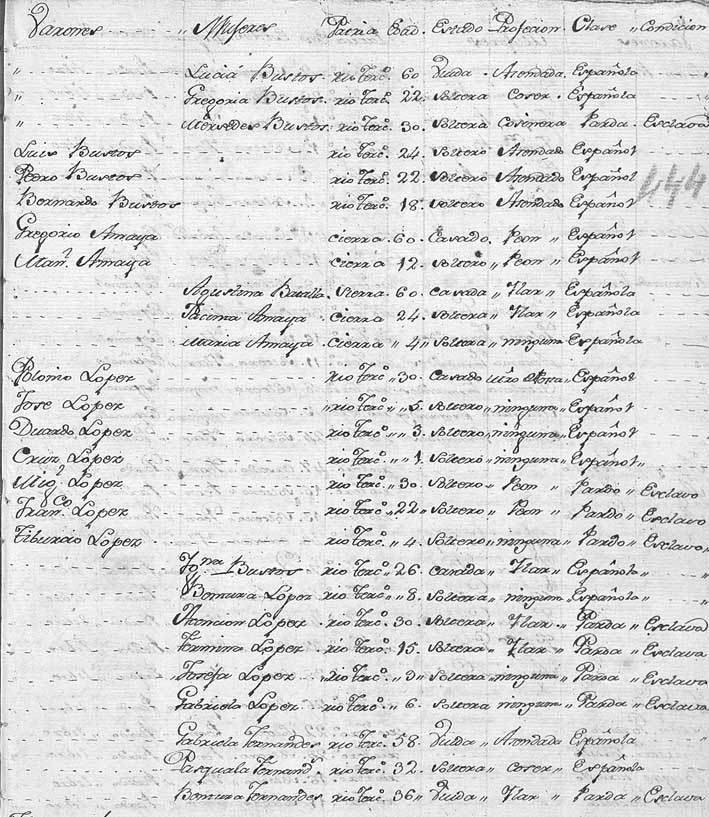 Varones " Mujeres Patria Edad. Estado Profecion Clase " Condicion
" Lucia Bustos rio Terc.º 60 Viuda Asendada Española
" Gregoria Bustos rio Terc.º 22. Soltera Coser Española "
" Mersedes Bustos rio Terc.º 30. Soltera Cosinera Parda Esclava
Luis Bustos rio Terc.º 24. Soltero Asendado Español
Pedro Bustos rio Terc.º 22. Soltero Asendado Español
144
Bernardo Bustos rio Terc.º 18. Soltero Asendado Español
Gregorio Amaya cierra 60. Casado Peon " Español
Man.l Amaya cierra 12. Soltero " Peon " Español
Agustina Batalla Sierra 60. casada " Ylar " Española
Jacinta Amaya cierra 24. Soltera " Ylar " Española
Maria Amaya cierra " 4 " Soltera " ninguna Española
Polonio Lopez rio Terc.º " 30. Casado Español
Jose Lopez " rio Terc.º " 5. Soltero " ninguna " Español
Duardo Lopez rio Terc.º " 3. Soltero " ninguna " Español
Cruz Lopez rio Terc.º " 1. Soltero " ninguna " Español "
Mig.l Lopez rio Terc.º " 30. Soltero " Peon " Pardo " Esclavo
Fran.co Lopez rio Terc.º " 22 " Soltero " Peon " Pardo " Esclavo
Tiburcio Lopez rio Terc.º " 4. Soltero " ninguna " Pardo " Esclavo "
Bustos rio Terc.º " 26. casada " Ylar " Española " "
Bentura Lopez rio Terc.º " 8. Soltera " ninguna " Española " "
Lopez rio Terc.º 30. Soltera " Ylar " Parda " Esclava
Fermina Lopez rio Terc.º 15. Soltera " Ylar " Parda " Esclava
Josefa Lopez " rio Terc.º " 3 " Soltera " ninguna " Parda " Esclava
Gabriela Lopez rio Terc.º " 6. Soltera ninguna " Parda " Esclava
Gabriela Fernandes rio Terc.º 58. Viuda " Asendada Española "
Pasquala Fernand.s rio Terc.º 32. Soltera " coser " Española
Bentura Fernandes rio Terc.º 36 " Viuda " Ylar " Parda " Esclava